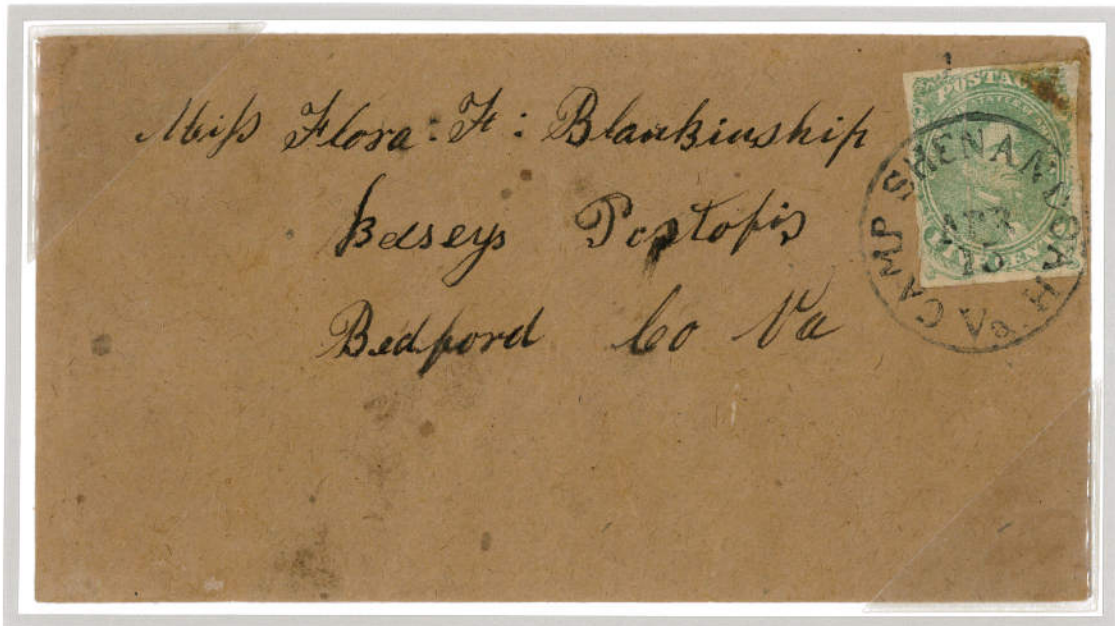 Miss Flora: F: Blankinship
Kaseys Postofis
Bedford Co Va
POSTAGE
CAMP SHENANDOAH VA
APR